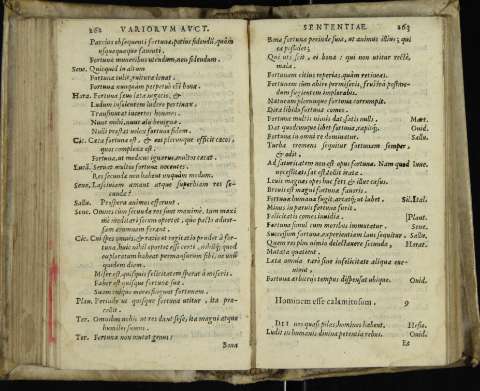 262 VARIORVM AVCT.
Parcius obsequenti fortunæ, potius fidendũ, quàm
usquequaque fauenti.
Fortunæ muneribus utendum, non fidendum.
Sene. Quicquid in altum
Fortuna tulit, ruitura leuat.
Fortuna nunquam perpetuò est bona.
Hora. Fortuna sæuo læta negotio, &
Ludum insolentem ludere pertinax,
Transmutat incertos honores,
Nunc mihi, nunc alij benigna.
Nulli præstat uelox fortuna fidem.
Cic. Cæca fortuna est, & eos plerunque efficit cæcos,
quos complexa est.
Fortuna, ut medicus ignarus, multos cæcat.
Lucã. Seruat multos fortuna nocentes.
Res secundæ non habent unquam modum.
Sene. Lasciuiam amant atque superbiam res secundæ?
Sallu. Prosperæ animos efferunt.
Sene. Omnes cum secundæ res sunt maxime, tum maximè
meditari secum oportet, quo pacto aduersam
ærumnam ferant.
Cic. Cuipes omnis, & ratio ut cogitatio pendet à fortuna,
huic nihil oportet esse certi, nihilq́; quod
exploratum habeat permansurum sibi, ne unũ
quidem diem.
Miser est, quisquis felicitatem sperat à miseris.
Faber est quisque fortunæ suæ.
Suam cuique mores fingunt fortunam.
Plau. Perinde ut quisque fortuna utitur, ita præcellit.
Ter. Omnibus nobis ut res dant sese, ita magni atque
humiles sumus.
Ter. Fortuna non mutat genus!
Bona
SENTENTIAE 263
Bona fortunæ perinde sunt, ut animus illius, qui
ea possidet;
Qui uti scit, ei bona: qui non utitur rectè,
mala.
Fortunam citius reperias, quàm retineas.
Fortunam cùm abire permiseris, frustra postmodum
fugientem implorabis.
Naturam plerunque fortuna corrumpit.
Dura libido fortunæ comes.
Fortuna multis nimis dat, satis nulli. Mart.
Dat quodcunque libet fortuna, rapitq́;. Ouid.
Fortuna in omni re dominatur. Sallu.
Turba tremens sequitur fortunam semper,
& odit.
Ad satietatem non est opus fortuna. Nam quod
necessitati sat est dolet irata.
Leuis magnas opes huc fert & illuc casus.
Breuis est magni fortuna fauoris.
Fortunæ humana fugit, arcetq́; ut lubet. Sil. Ital.
Minus in paruis fortuna furit.
Felicitatis comes inuidia. [Plant.
Fortuna simul cum moribus immutatur. Sene.
Successum fortuna, experientiam laus sequitur. Sallu.
Quem res plus nimio delectauere secundæ, Horat.
Mutatæ quatient.
Læta omnia tarò sine infelicitate aliqua eueniunt.
Fortunæ arbitrijs tempus dispensat ubique. Ouid.
Hominem esse calamitosum. 9
DII nos quasi pilas, homines habent. Hesio.
Ludit in humanis diuina potentia rebus. Ouid.
Et